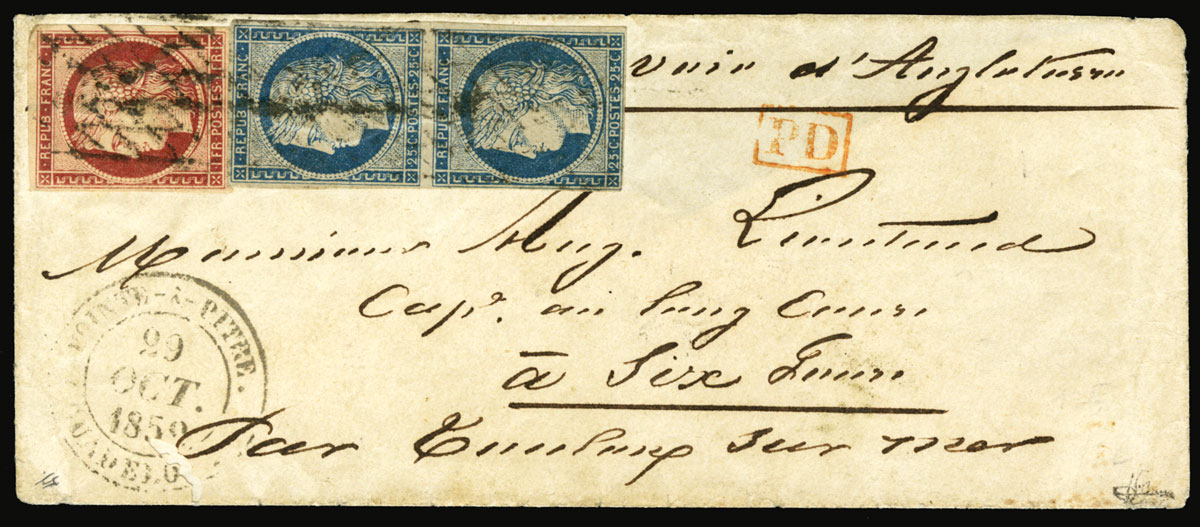 REPUB. FRANC. 1 FR. POSTES. 1 FR.
REPUB. FRANC. 25 C. POSTES. 25 C.
REPUB. FRANC. 25 C. POSTES. 25 C.
voie d'Angleterre
PD
Monsieur Aug. Lieutaud
Cap.e au long Cours
à Six Fours
Par Toulon sur mer
POINTE-À-PITRE.
29
OCT.
1850
GUADELO